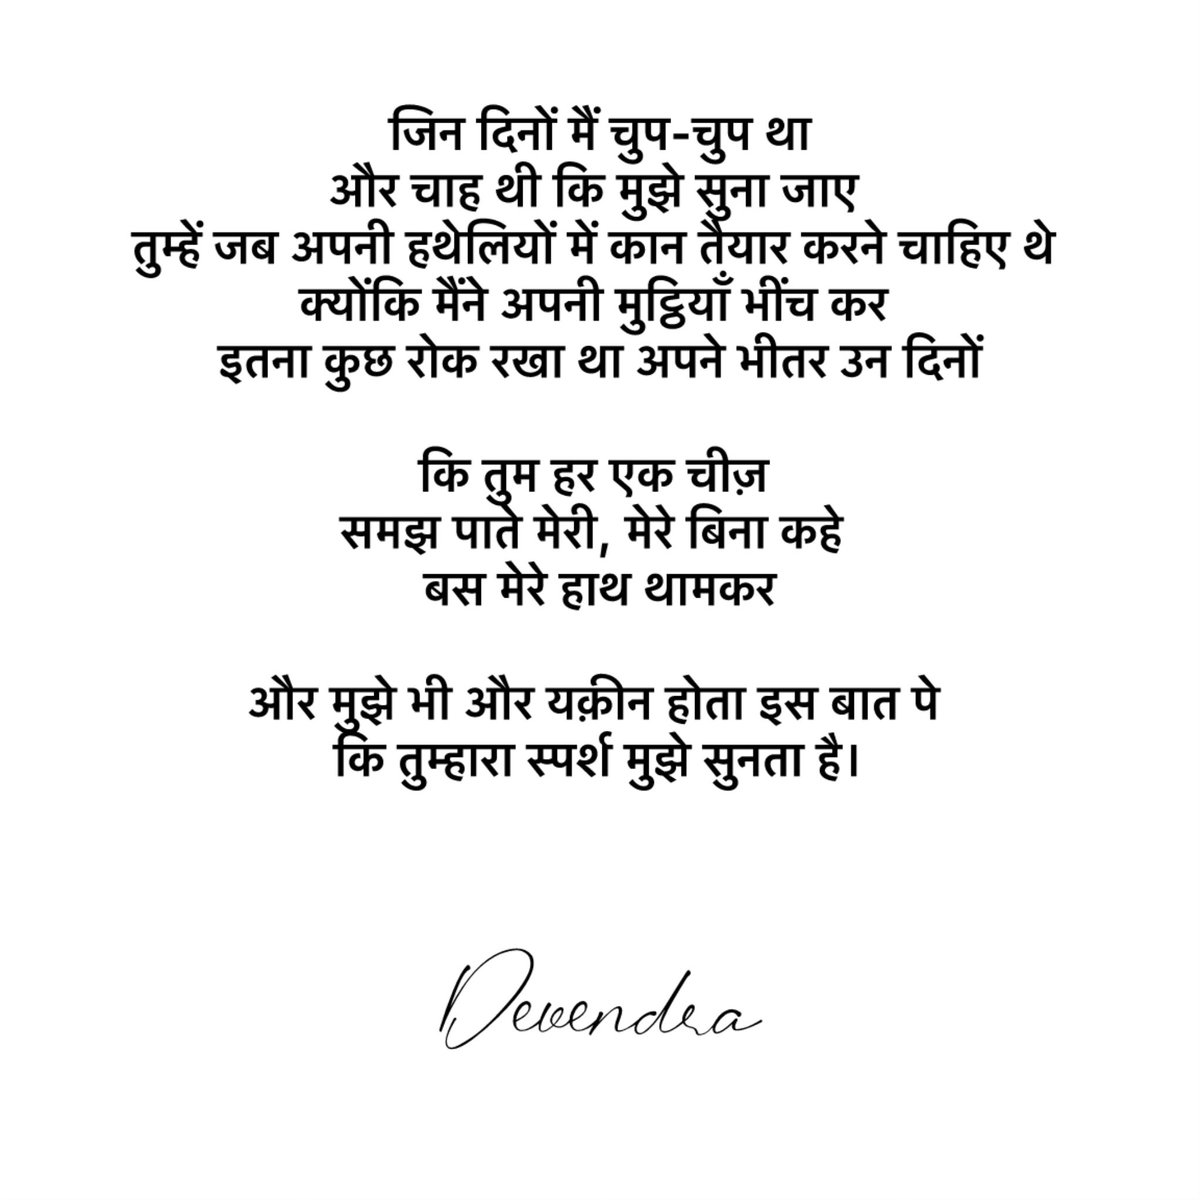 जिन दिनों मैं चुप-चुप था
और चाह थी कि मुझे सुना जाए
तुम्हें जब अपनी हथेलियों में कान तैयार करने चाहिए थे
क्योंकि मैंने अपनी मुट्ठियाँ भींच कर
इतना कुछ रोक रखा था अपने भीतर उन दिनों
कि तुम हर एक चीज़
समझ पाते मेरी, मेरे बिना कहे
बस मेरे हाथ थामकर
और मुझे भी और यक़ीन होता इस बात पे
कि तुम्हारा स्पर्श मुझे सुनता है।
Devendra